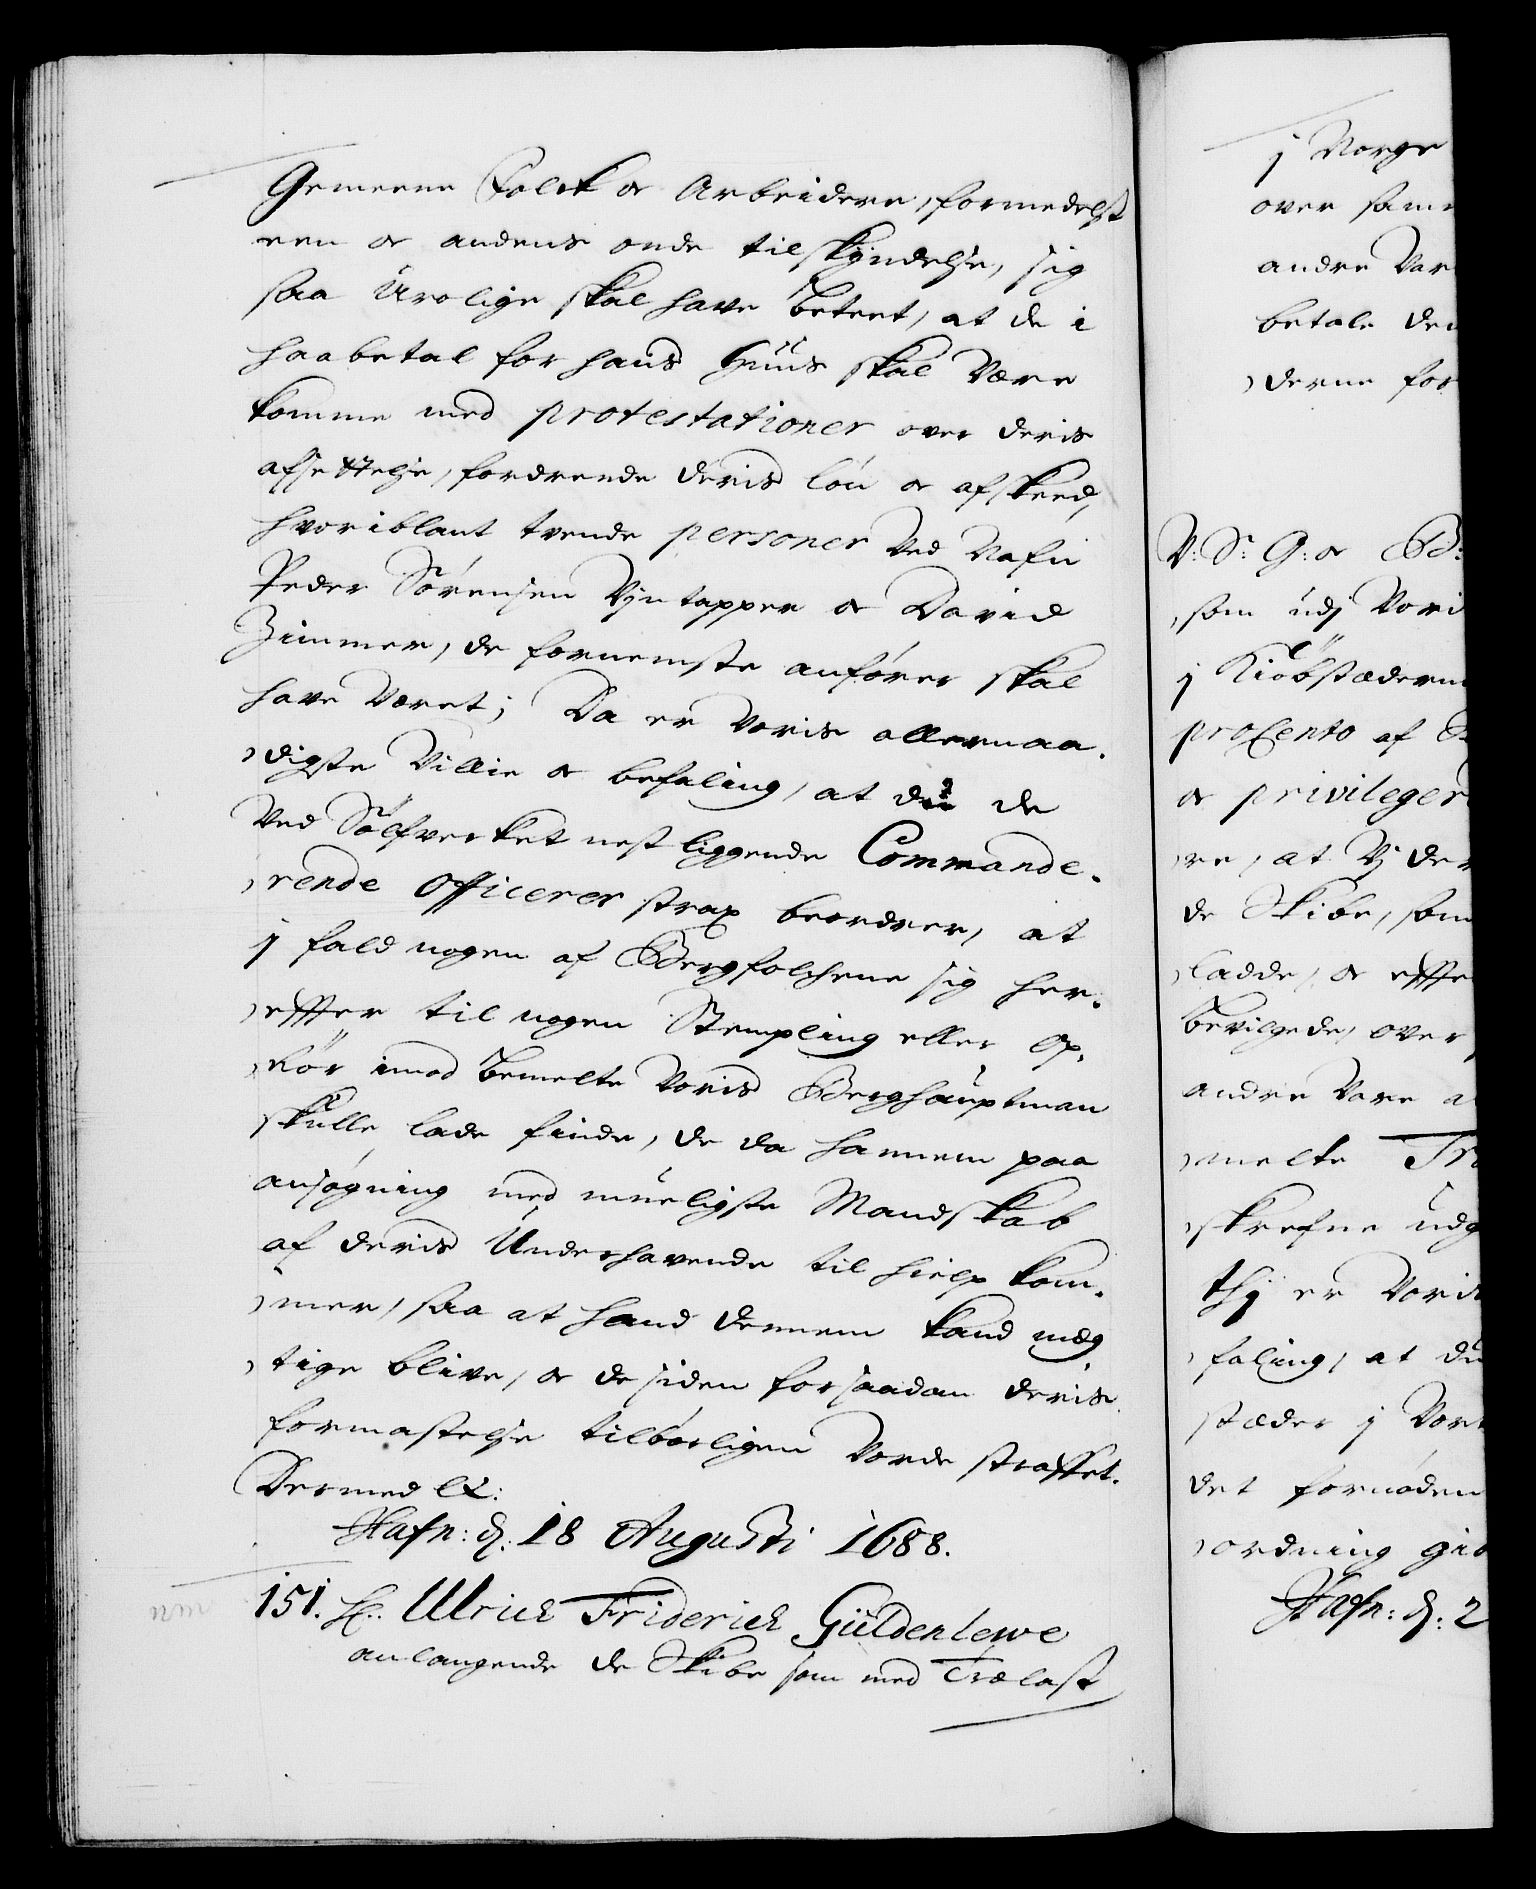 Gemeene Folck og Arbeidere, formedelst
een og andens onde tilskyndelse, sig
saa Urolige skal have beteet, at de i
haabetal for hans Huus skal være
komme med protestationer over deris
afsettelse, fordrende deris løn og afskeed,
hvoriblant tvende personer ved Nafn
Peder Sørensen Vyntapper og David
Zimmer, de fornemste anfører skal
have været; Da er voris allernaa-
digste Villie og befaling, at du de
ved Sølfverket nest liggende Commande-
rende Officerer strax beordrer, at
j fald nogen af Bergfolchene sig her-
effter til nogen Stempling eller Op-
rør imod bemelte voris Berghauptman
skulle lade finde, de da hannem paa
ansøgning med mueligste Mandskab
af deris Underhavende til hielp kom-
mer, saa at hand dennem kand mæg
tige blive, og de siden for saadan deris
formastelse tilbørligen vorde straffet.
Dermed &:
Hafn: d: 18 Augusti 1688.
151. H: Ulrich Friderich Güldenlewe
anlangende de Skibe som med Trælast
j Norge
over
andre
betale
derne for
V: S: G: og B:
som udj Vori
j Kiøbstæderne
procento af
og privileger
re, at Vj
de Skibe, som
ladde, og effte
bevilgede, over
andre Vare
melte
skrefne udg
thj er Voris
faling, at du
stæder j Vor
det fornøden
ordning
Hafn: d: 2